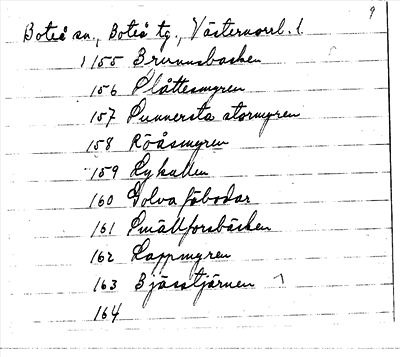 9
Boteå sn., Boteå tg., Västernorrl. l.
1155 Brunnsbacken
156 Slåttesmyren
157 Sunnersta stormyren
158 Rödåsmyren
159 Lykallen
160 Golva fäbodar
161 Smällforsbäcken
162 Lappmyren
163 Bjässtjärnen
164